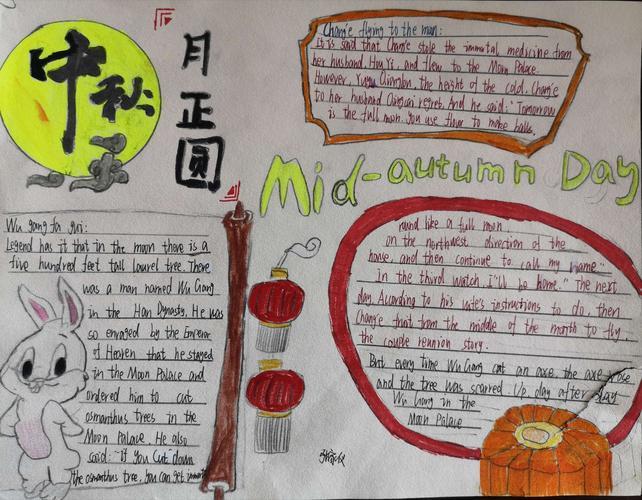 中秋
月正圆
Chang'e flying to the moon:
It is said that Chang'e stole the immortal medicine from
her husband, Hou Yi, and flew to the Moon Palace.
However, Yuyu Qionglou, the height of the cold, Chang'e
to her husband Qingsui regret. And he said: "Tomorrow
is the full moon. you use flour to make balls,
Mid-autumn Day
Wu gang fa gui:
Legend has it that in the moon there is a
five hundred feet tall laurel tree. There
was a man named Wu Gang
in the Han Dynasty. He was
so enraged by the Emperor
of Heaven that he stayed
in the Moon Palace and
ordered him to cut
osmanthus trees in the
Moon Palace. He also
said: "if you cut down
the osmanthus tree, you can get
round like a full moon
on the northwest direction of the
house, and then continue to call my name."
In the third watch, i"ll be home." The next
day, According to his wife's instructions to do, then
Chang'e that from the middle of the month to fly,
the couple reunion story.
But every time Wu Gang cut an axe, the axe rose
and the tree was scarred up, day after day
Wu Gang in the
Moon Palace